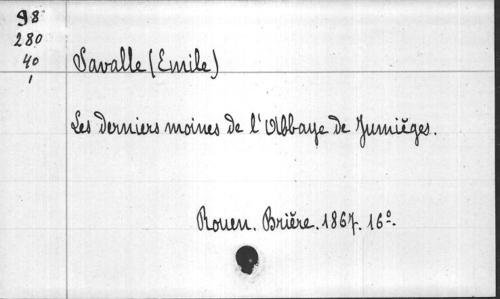 98
280
40
1
Savalle (Emile)
Les derniers moines de l'Abbaye de Jumièges.
Rouen. Brière. 1867. 16º.